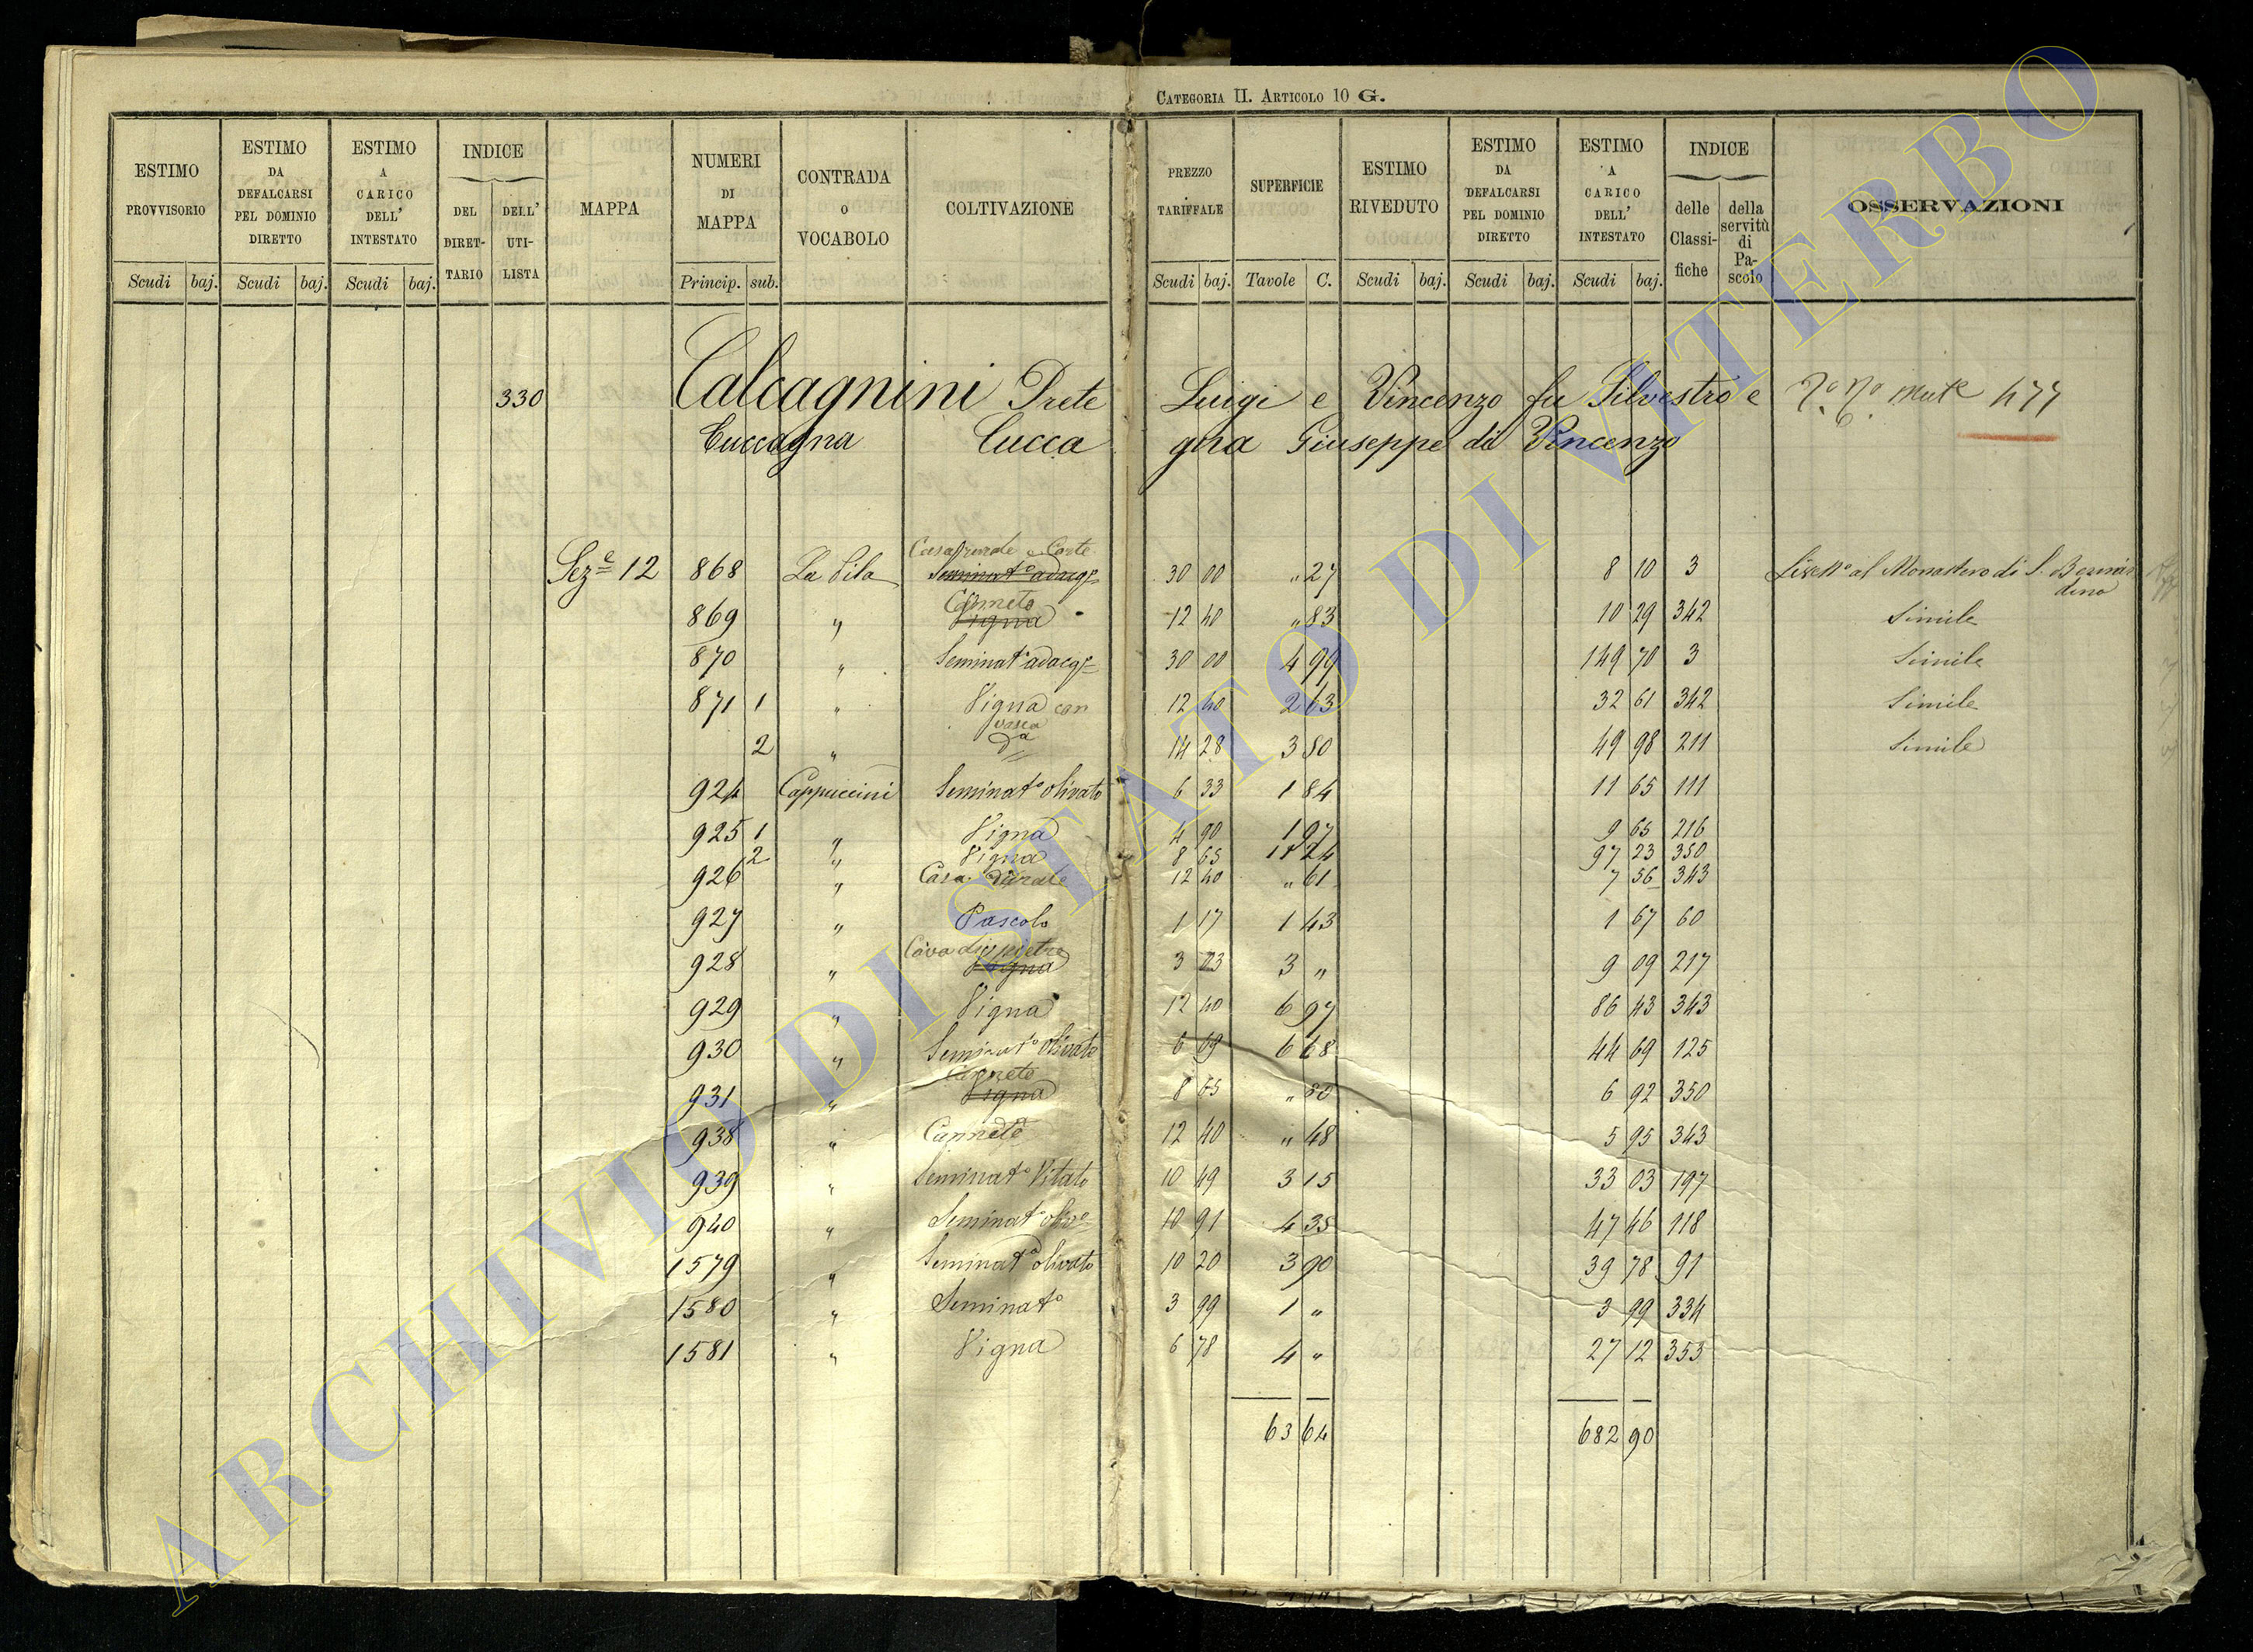 CATEGORIA II. ARTICOLO 10 G.
ESTIMO PROVVISORIO Scudi baj.
ESTIMO DA DEFALCARSI PEL DOMINIO DIRETTO Scudi baj.
ESTIMO A CARICO DELL' INTESTATO Scudi baj.
INDICE DEL DIRET-TARIO DELL' UTI-LISTA
MAPPA
NUMERI DI MAPPA Princip. sub.
CONTRADA O VOCABOLO
COLTIVAZIONE
PREZZO TARIFFALE Scudi baj.
SUPERFICIE Tavole C.
ESTIMO RIVEDUTO Scudi baj.
ESTIMO DA DEFALCARSI PEL DOMINIO DIRETTO Scudi baj.
ESTIMO A CARICO DELL' INTESTATO Scudi baj.
INDICE delle Classi-fiche della servitù di Pa-scolo
OSSERVAZIONI
330 Calcagnini Prete Luigi e Vincenzo fu Silvestro e 477
Cuccagna Cucca gna Giuseppe di Vincenzo
Casa rurale e Corte
Sez.e 12 868 La Pila Seminat.o adacq.o 30 00 " 27 8 10 3 al Monastero di S. Bernar
dino
Canneto
869 " Vigna 12 40 " 83 10 29 342 Simile
870 " Seminat.o adacq.o 30 00 4 99 149 70 3 Simile
871 1 " Vigna con 12 40 2 63 32 61 342 Simile
vasca
2 " d.a 14 28 3 50 49 98 211 Simile
924 Cappuccini Seminat.o olivato 6 33 1 84 11 65 111
925 1 " Vigna 4 90 1 97 9 65 216
2 " Vigna 8 65 11 24 97 23 350
926 " Casa rurale 12 40 " 61 7 56 343
927 " Pascolo 1 17 1 43 1 67 60
Cava di pietra
928 " Vigna 3 03 3 " 9 09 217
929 " Vigna 12 40 6 97 86 43 343
930 " Seminat.o olivato 6 69 6 68 44 69 125
Canneto
931 " Vigna 8 65 " 80 6 92 350
938 " Canneto 12 40 " 48 5 95 343
939 " Seminat.o Vitato 10 49 3 15 33 03 197
940 " Seminat.o oliv.o 10 91 4 35 47 46 118
1579 " Seminat.o olivato 10 20 3 90 39 78 91
1580 " Seminat.o 3 99 1 " 3 99 334
1581 " Vigna 6 78 4 " 27 12 353
63 64 682 90
ARCHIVIO DI STATO DI VITERBO